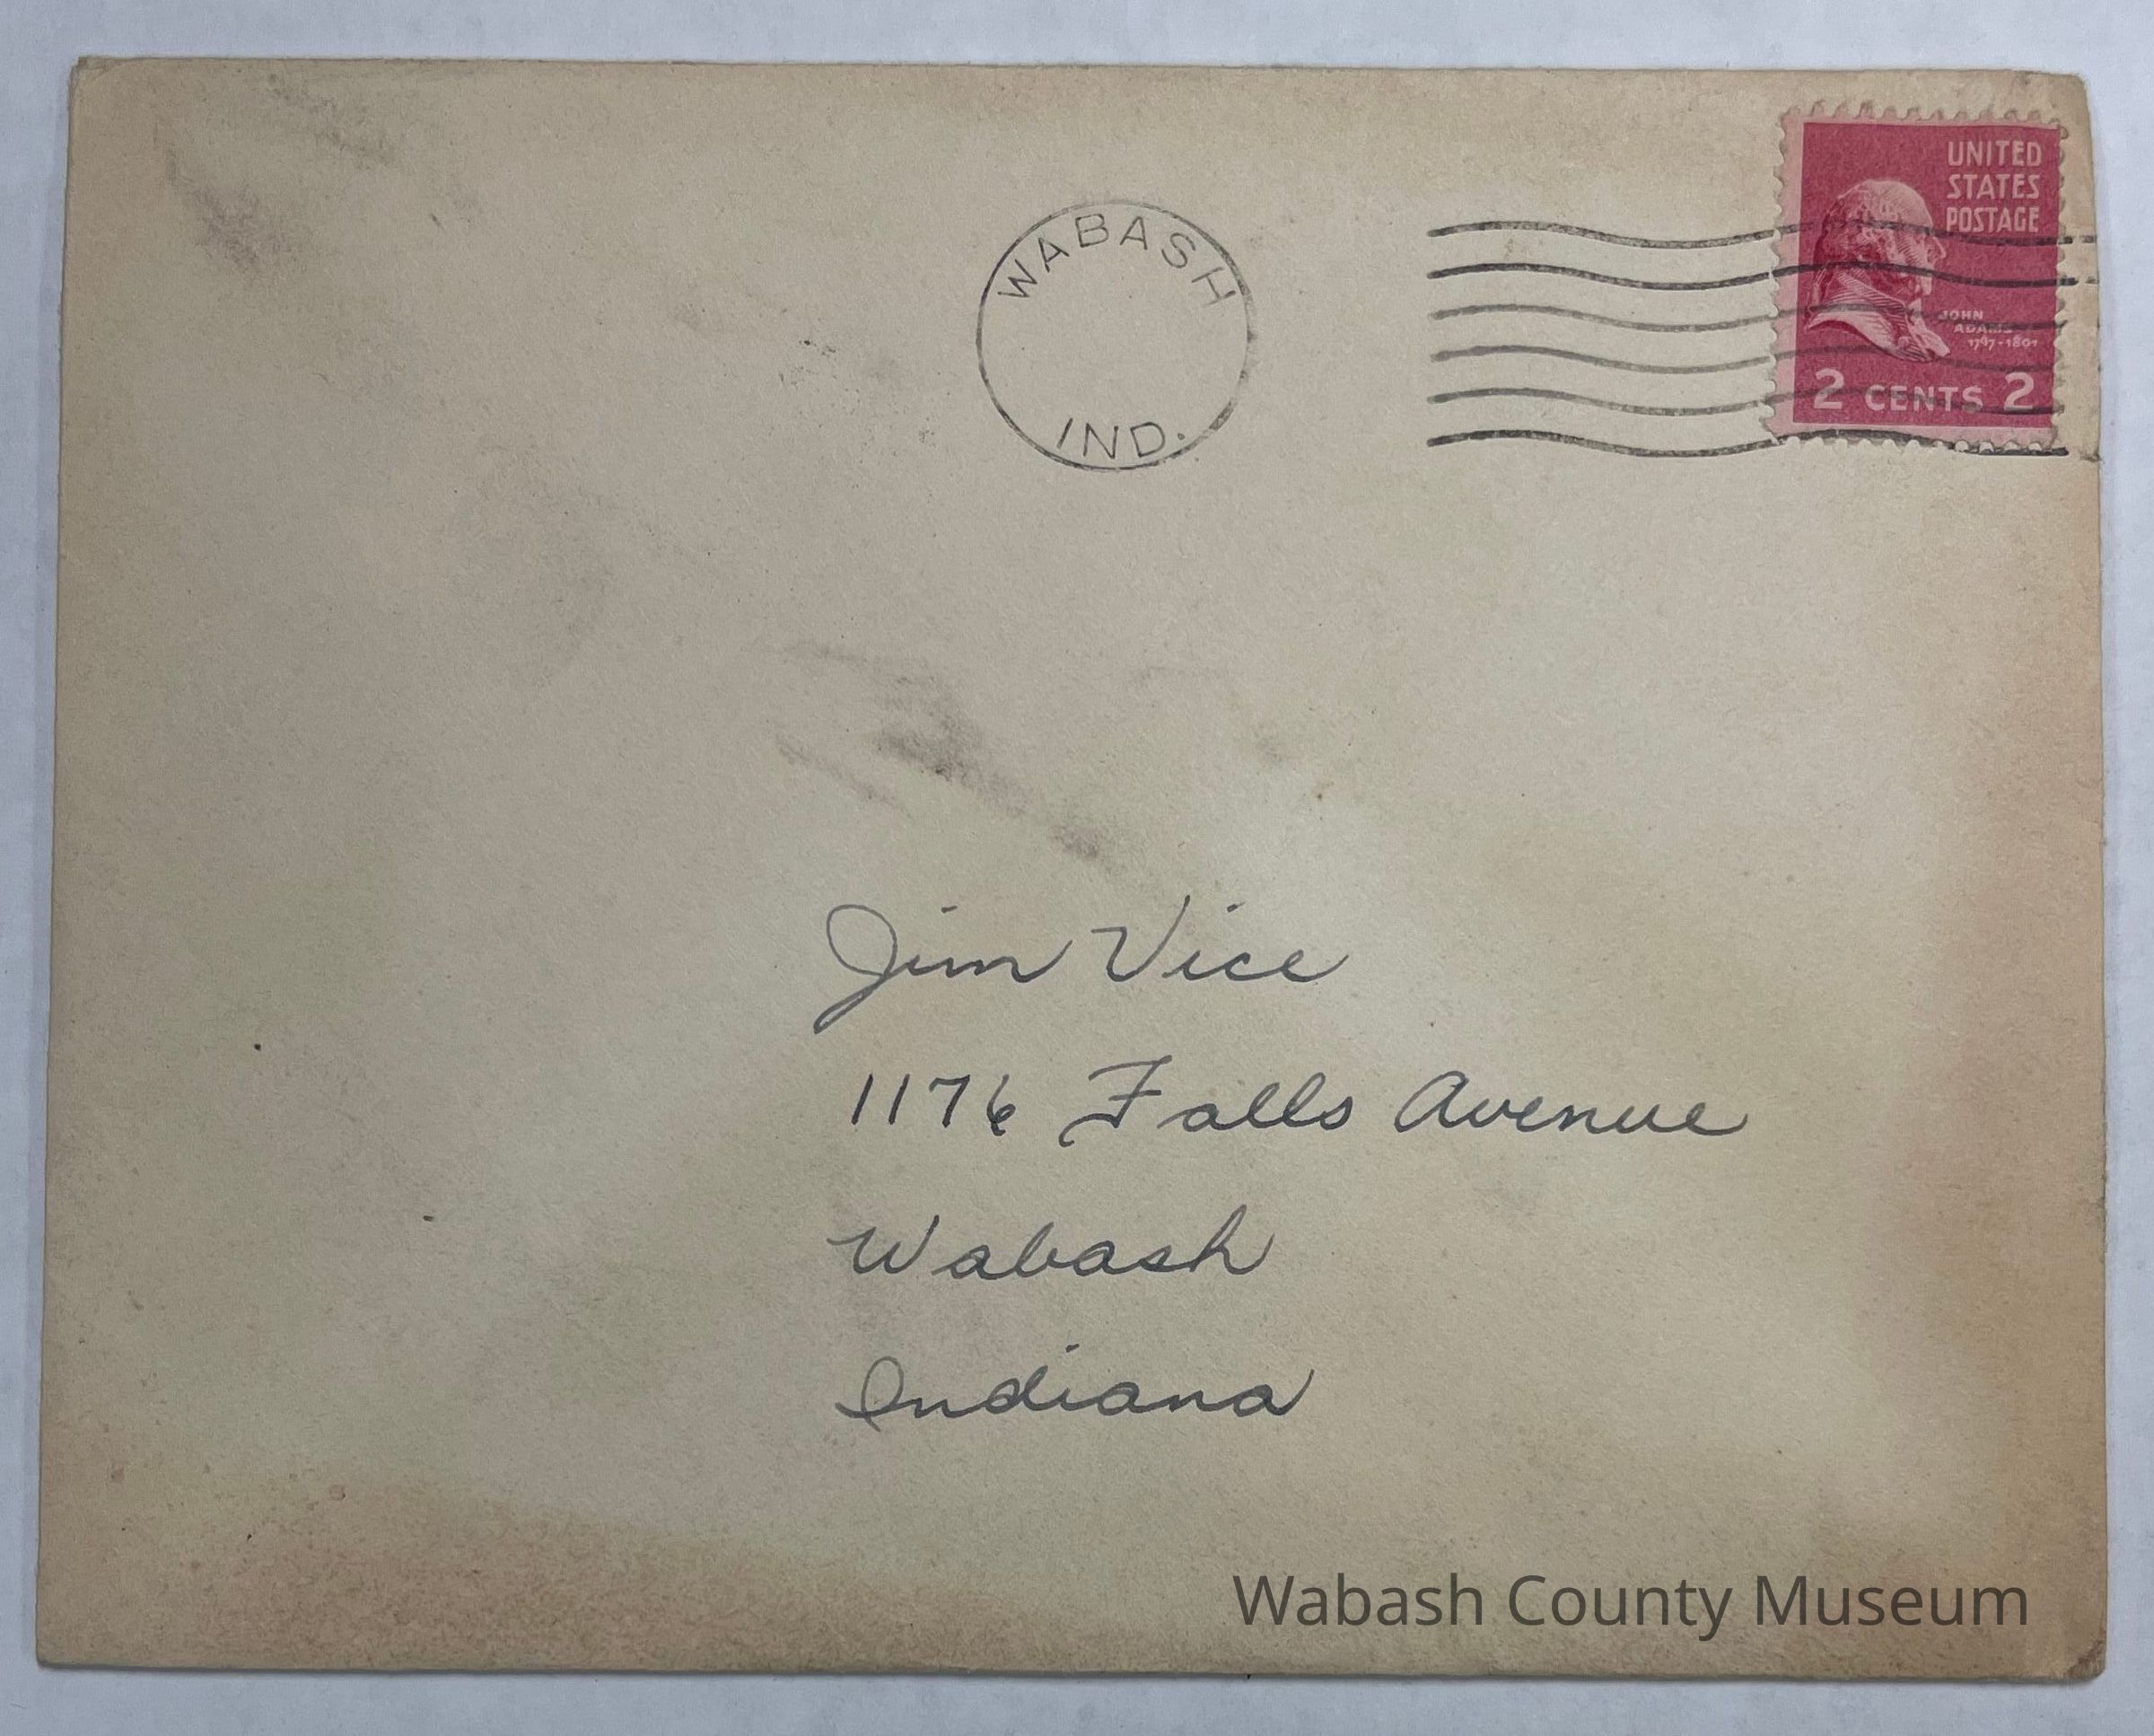 WABASH
IND.
UNITED
STATES
POSTAGE
JOHN
ADAMS
1797-1801
2 CENTS 2
Jim Vice
1176 Falls Avenue
Wabash
Indiana
Wabash County Museum